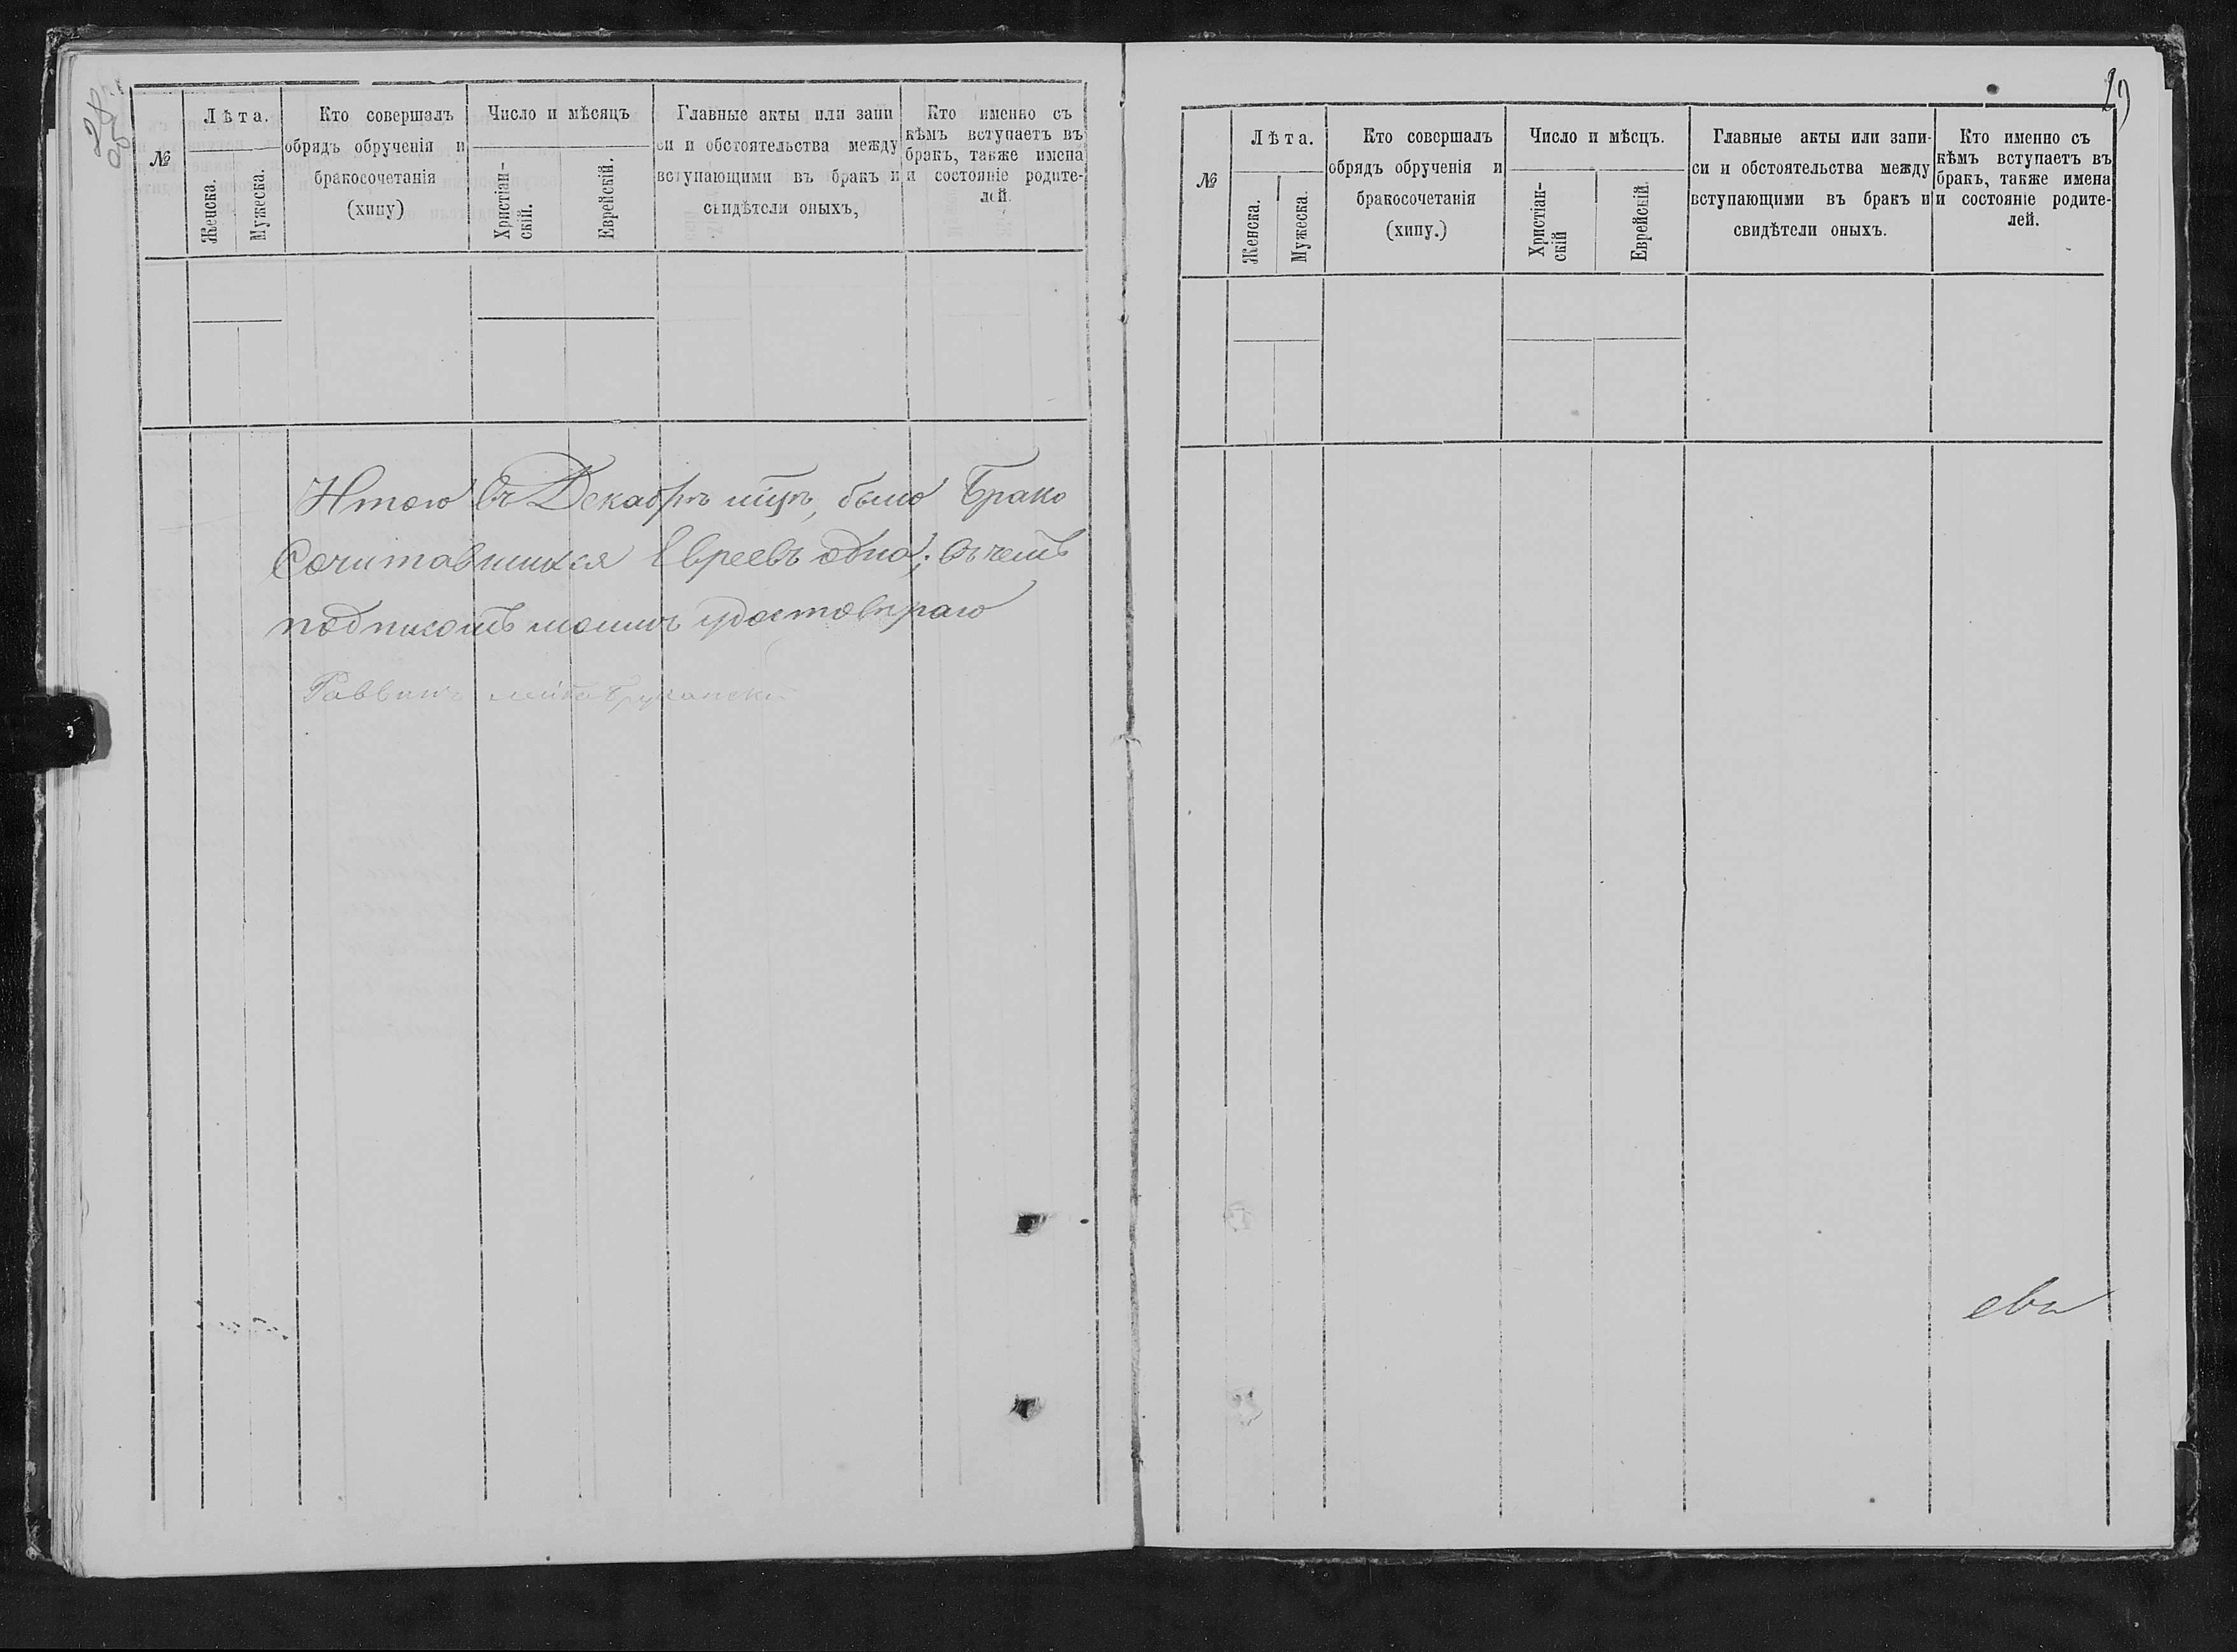 28
об
№
Лѣта.
Женска.
Мужеска.
Кто совершалъ
обрядъ обрученія и
бракосочетанія
(хипу)
Число и мѣсяцъ
Христіан-
скій.
Еврейскій.
Главные акты или запи
си и обстоятельства между
вступающими въ бракъ и
свидѣтели оныхъ,
Кто именно съ
кѣмъ вступаетъ въ
бракъ, также имена
и состояніе родите-
лей.
Итого въ Декабрѣ мцѣ, было Брако
Сочитавшихся Евреевъ одна; въ чемъ
подписомъ моимъ удостовѣряю
Раввинъ
29
№
Лѣта.
Женска.
Мужеска.
Кто совершалъ
обрядъ обрученія и
бракосочетанія
(хипу.)
Число и мѣсцъ.
Христіан-
скій
Еврейскій.
Главные акты или запи-
си и обстоятельства между
вступающими въ бракъ и
свидѣтели оныхъ.
Кто именно съ
кѣмъ вступаетъ въ
бракъ, также имена
и состояніе родите-
лей.